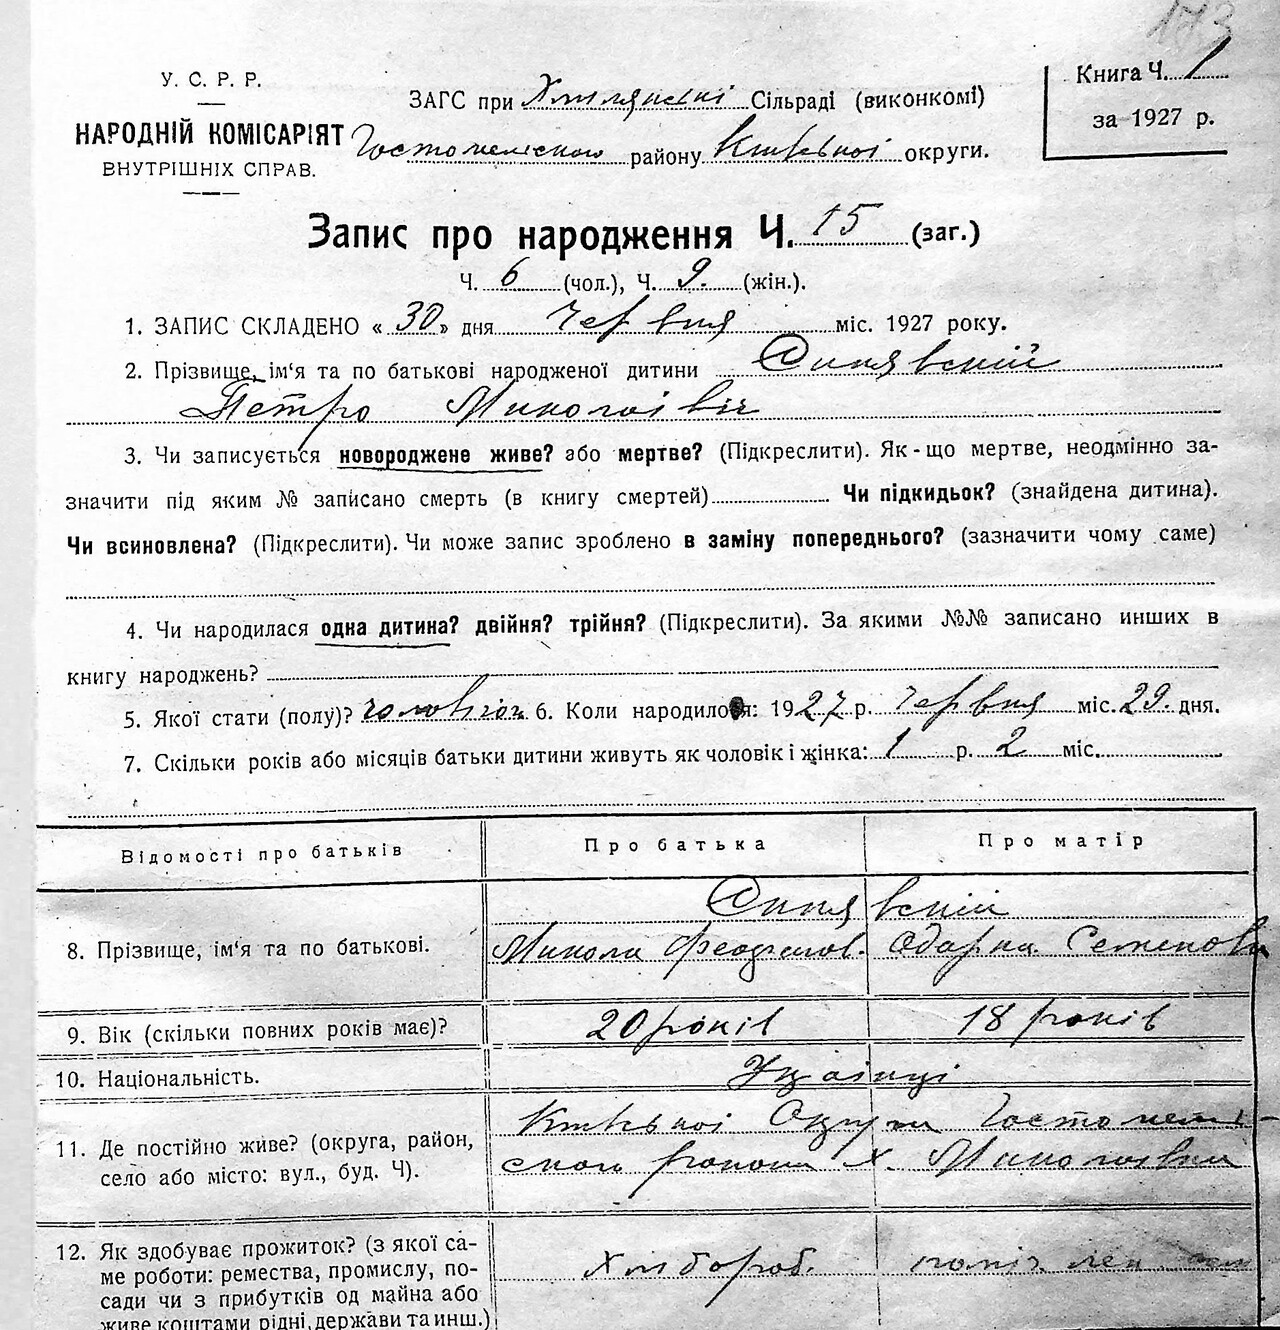 173
У. С. Р. Р.
НАРОДНІЙ КОМІСАРІЯТ
ВНУТРІШНІХ СПРАВ.
ЗАГС при Хмилянські Сільраді (виконкомі)
Гостомельского району Київської округи.
Книга Ч. 1
за 1927 р.
Запис про народження Ч. 15 (заг.)
Ч. 6 (чол.), Ч. 9. (жін.).
1. ЗАПИС СКЛАДЕНО « 30 » дня червня міс. 1927 року.
2. Прізвище, ім‘я та по батькові народженої дитини Синявский
Петро Миколаївич
3. Чи записується новороджене живе? або мертве? (Підкреслити). Як-що мертве, неодмінно за-
значити під яким № записано смерть (в книгу смертей) Чи підкидьок? (знайдена дитина).
Чи всиновлена? (Підкреслити). Чи може запис зроблено в заміну попереднього? (зазначити чому саме)
4. Чи народилася одна дитина? двійня? трійня? (Підкреслити). За якими №№ записано инших в
книгу народжень?
5. Якої стати (полу)? чоловічої 6. Коли народилося: 1927 р. червня міс. 29. дня.
7. Скільки років або місяців батьки дитини живуть як чоловік і жінка: 1 р. 2 міс.
Відомості про батьків
Про батька
Про матір
8. Прізвище, ім‘я та по батькові.
Синявский
Микола Феофанов. Одарка Семенова
9. Вік (скільки повних років має)?
20 років
18 років
10. Національність.
Українці
11. Де постійно живе? (округа, район,
село або місто: вул., буд. Ч).
Київської Округи Гостомель-
ского району х. Миколаївка
12. Як здобуває прожиток? (з якої са-
ме роботи: ремества, промислу, по-
сади чи з прибутків од майна або
живе коштами рідні, держави та инш.)
Хлібороб.